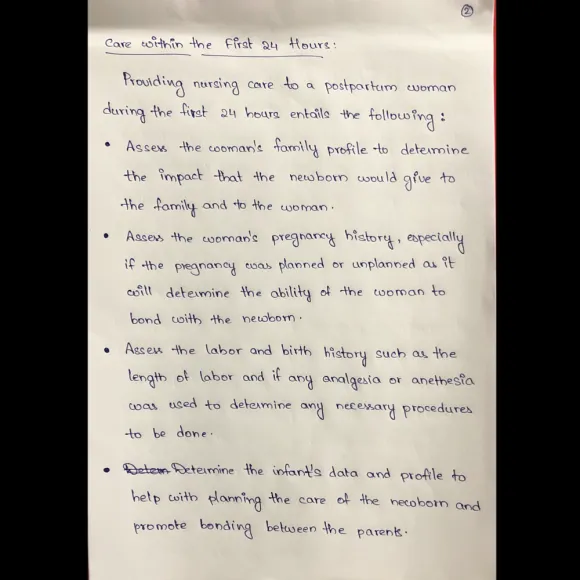 2
Care within the First 24 Hours:
Providing nursing care to a postpartum woman
during the first 24 hours entails the following:
• Assess the woman's family profile to determine
the impact that the newborn would give to
the family and to the woman.
• Assess the woman's pregnancy history, especially
if the pregnancy was planned or unplanned as it
will determine the ability of the woman to
bond with the newborn.
• Assess the labor and birth history such as the
length of labor and if any analgesia or anethesia
was used to determine any necessary procedures
to be done.
• Detem Determine the infant's data and profile to
help with planning the care of the newborn and
promote bonding between the parents.